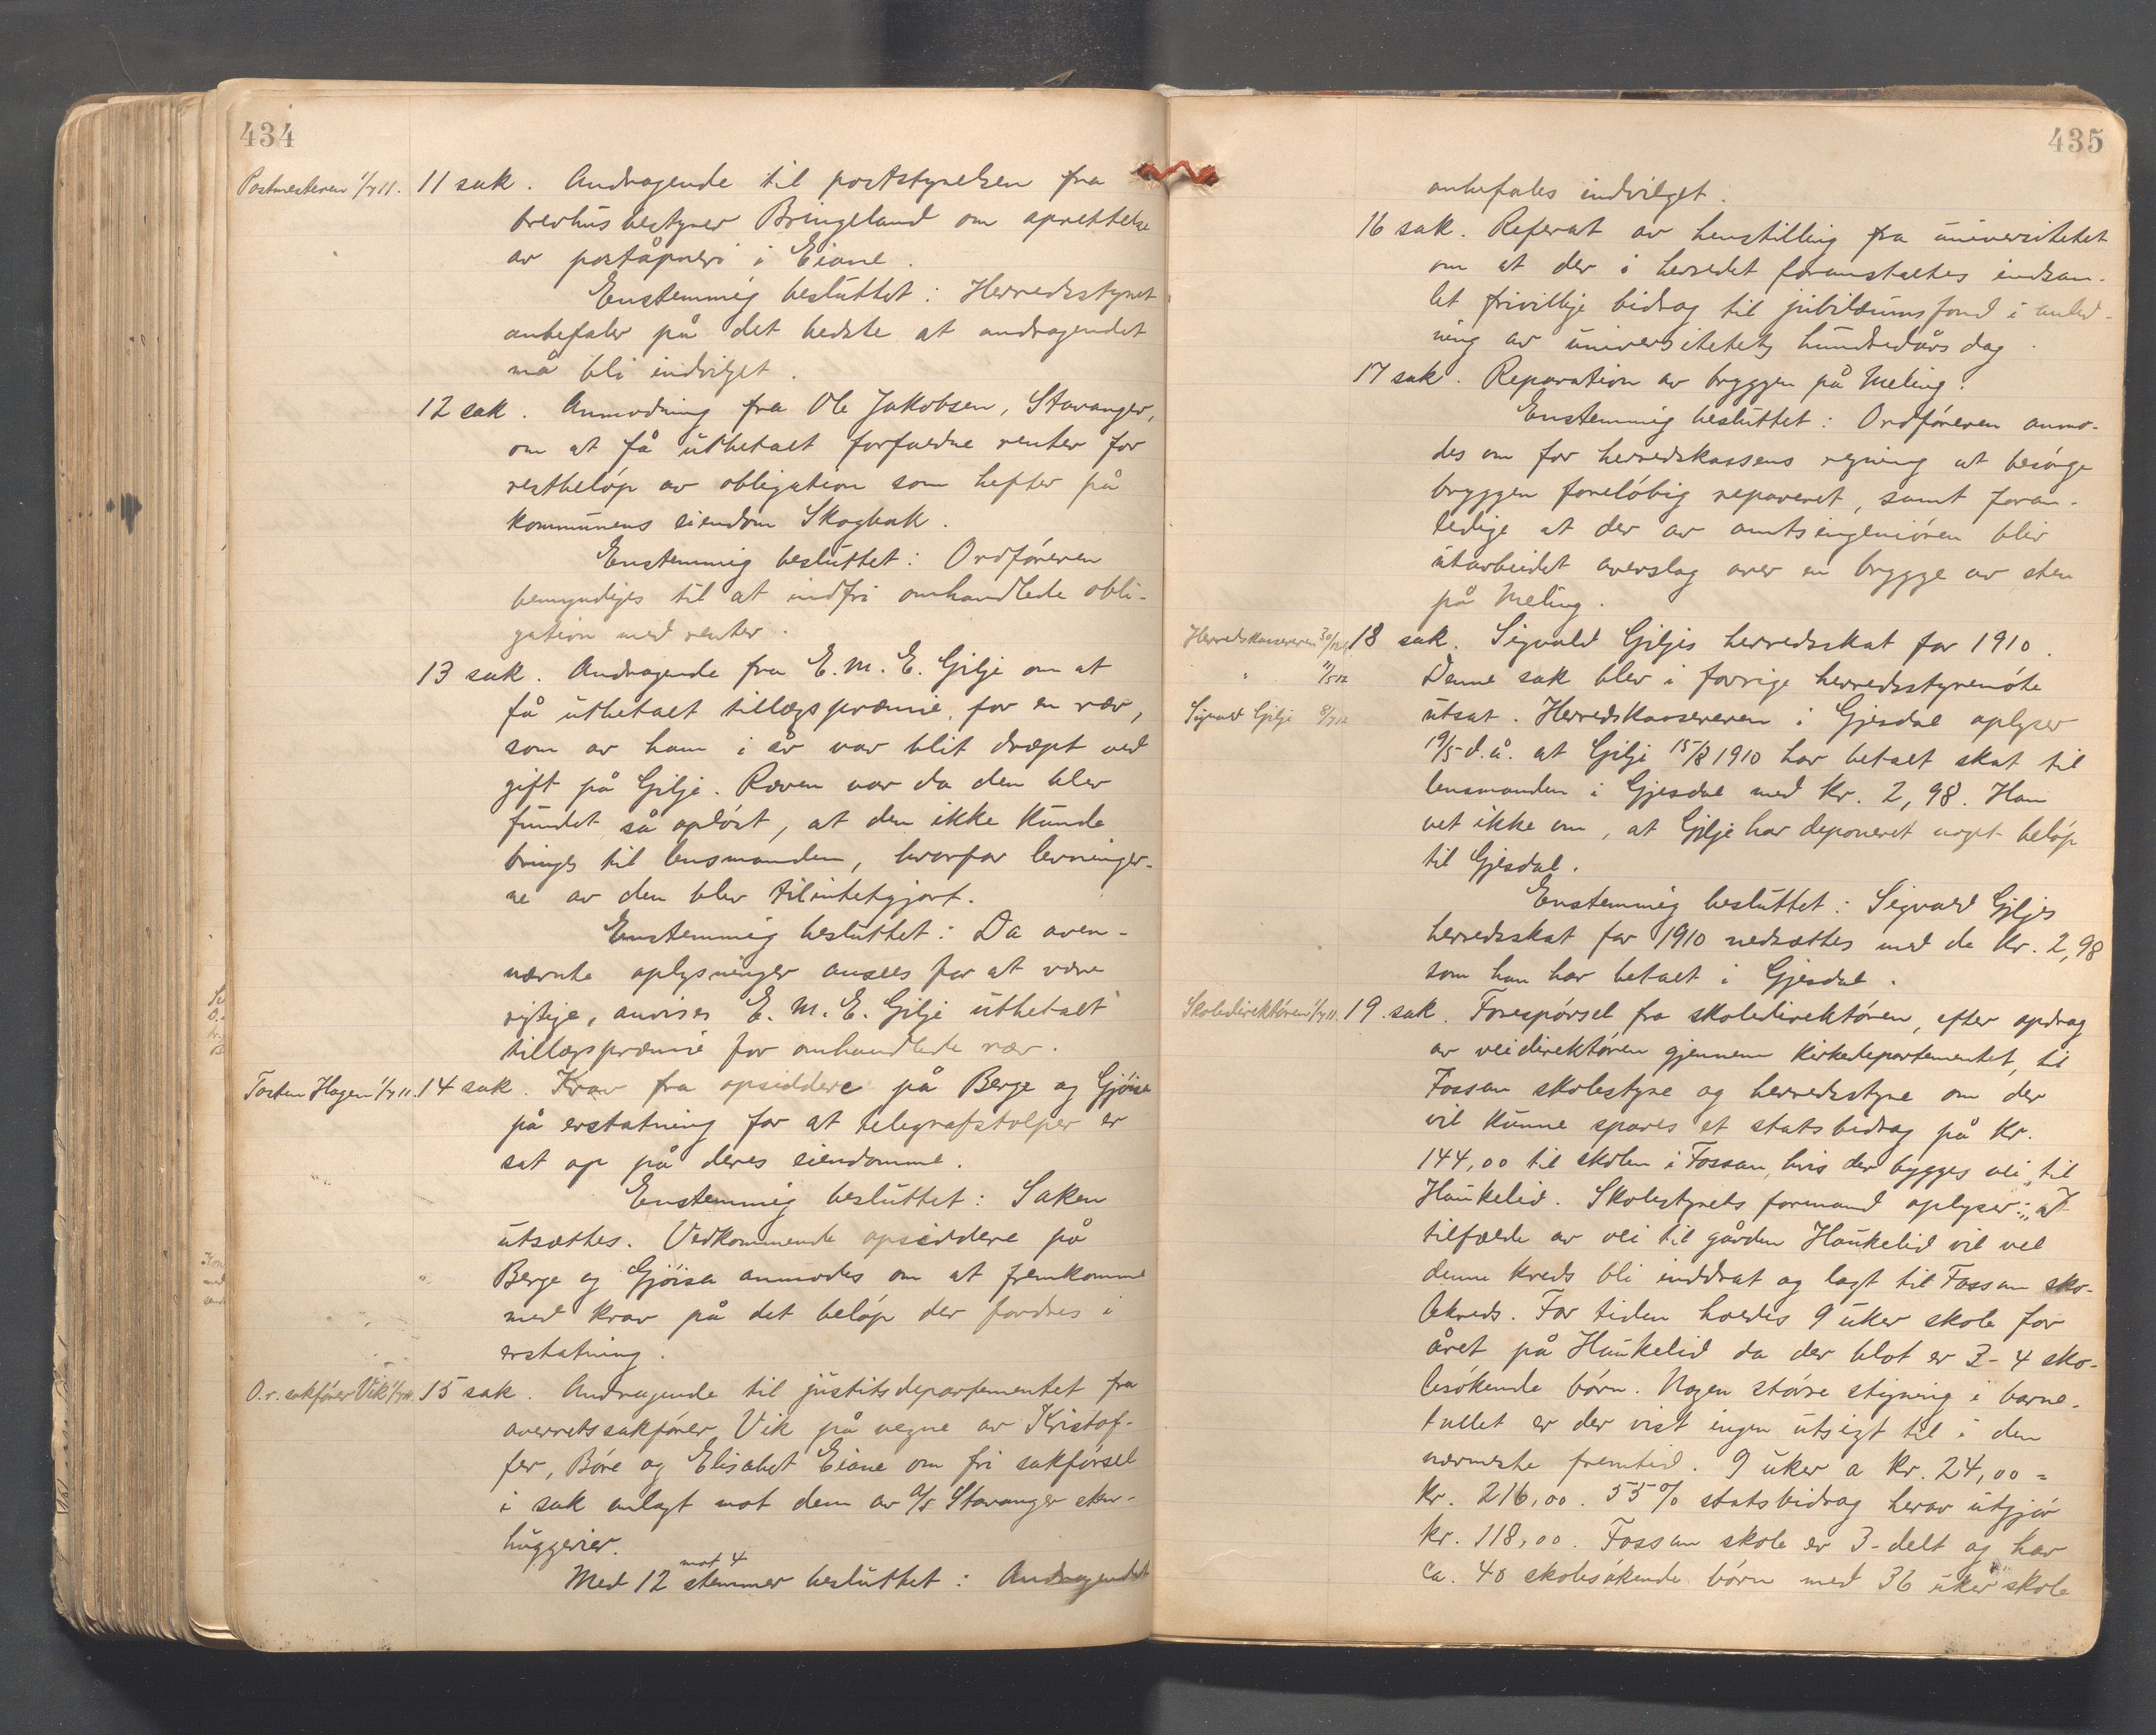 434
Postmesteren 1/7 11. 11 sak. Andragende til poststyrelsen fra
brevhusbestyrer Bringeland om oprettelse
av poståpneri i Eiane.
Enstemmig besluttet: Herredsstyret
anbefaler på det bedste at andragendet
må bli indvilget.
12 sak. Anmodning fra Ole Jakobsen, Stavanger,
om at få utbetalt forfaldne renter for
restbeløp av obligation som hefter på
kommunens eiendom Skogbak.
Enstemmig besluttet: Ordføreren
bemyndiges til at indfri omhandlede obli-
gation med renter.
13 sak. Andragende fra E. M. E. Gilje om at
få utbetalt tillægspræmie for en ræv,
som av ham i år var blit dræpt ved
gift på Gilje. Ræven var da den blev
fundet så opløst, at den ikke kunde
bringes til lensmanden, hvorfor levninger-
ne av den blev tilintetgjort.
Enstemmig besluttet: Da oven-
nævnte oplysninger ansees for at være
rigtige, anvises E. M. E. Gilje utbetalt
tillægspræmie for omhandlede ræv.
Tosten Hagen 1/7 11. 14 sak. Krav fra opsiddere på Berge og Gjøise
på erstatning for at telegrafstolper er
sat op på deres eiendomme.
Enstemmig besluttet: Saken
utsættes. Vedkommende opsiddere på
Berge og Gjøisa anmodes om at fremkomme
med krav på det beløp der fordres i
erstatning.
O.r. sakfører Vik 1/7 11. 15 sak. Andragende til justitsdepartementet fra
overretssakfører Vik på vegne av Kristof-
fer, Børe og Elisabet Eiane om fri sakførsel
i sak anlagt mot dem av A/S Stavanger sten-
huggerier.
Med 12 mot 4 stemmer besluttet: Andragendet
435
anbefales indvilget.
16 sak. Referat av henstilling fra universitetet
om at der i herredet foranstaltes indsam-
let frivillige bidrag til jubilæumsfond i anled-
ning av universitetets hundredårsdag.
17 sak. Reparation av bryggen på Meling.
Enstemmig besluttet: Ordføreren anmo-
des om for herredskassens regning at besørge
bryggen foreløbig reparert, samt foran-
ledige at der av amtsingeniøren blir
utarbeidet overslag over en brygge av sten
på Meling.
Herredskassereren 18 sak. Sigvald Giljes herredsskat for 1910.
" 11/5 12 Denne sak blev i forrige herredsstyremøte
Sigvald Gilje 8/7 12 utsat. Herredskassereren i Gjesdal oplyser
19/5 d.å. at Gilje 15/8 1910 har betalt skat til
lensmanden i Gjesdal med kr. 2,98. Han
vet ikke om, at Gilje har deponeret noget beløp
til Gjesdal.
Enstemmig besluttet: Sigvald Giljes
herredsskat for 1910 nedsættes med de kr. 2,98
som han har betalt i Gjesdal.
Skoledirektøren 1/7 11. 19. sak. Forespørsel fra skoledirektøren, efter opdrag
av veidirektøren gjennem kirkedepartementet, til
Fossan skolestyre og herredsstyre om der
vil kunne spares et statsbidrag på kr.
144,00 til skolen i Fossan, hvis der bygges vei til
Haukelid. Skolestyrets formand oplyser: „I
tilfælde av vei til gården Haukelid vil vel
denne kreds bli inddrat og lagt til Fossan sko-
lekreds. For tiden holdes 9 uker skole for
året på Haukelid da der blot er 3-4 sko-
lesøkende børn. Nogen større stigning i barne-
tallet er der vist ingen utsigt til i den
nærmeste fremtid. 9 uker a kr. 24,00 =
kr. 216,00. 55% statsbidrag herav utgjør
kr. 118,00. Fossan skole er 3-delt og har
ca. 40 skolesøkende børn med 36 uker skole